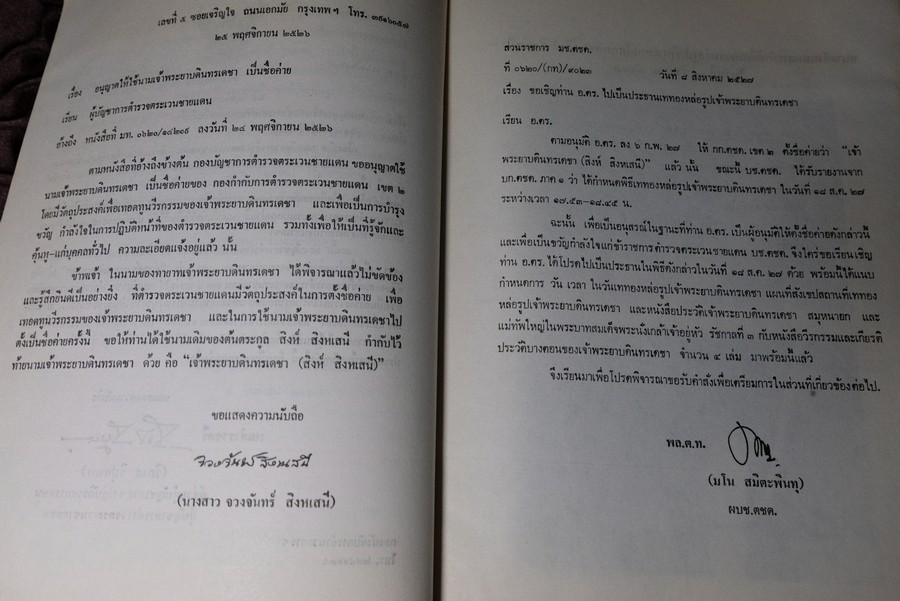 เลขที่ ๕ ซอยเจริญใจ ถนนเอกมัย กรุงเทพฯ โทร. ๓๙๑๖๐๕๗
๒๕ พฤศจิกายน ๒๕๒๖
เรื่อง อนุญาตให้ใช้นามเจ้าพระยาบดินทรเดชา เป็นชื่อค่าย
เรียน ผู้บัญชาการตำรวจตระเวนชายแดน
อ้างถึง หนังสือที่ มท. ๐๖๒๐/๑๔๒๑๙ ลงวันที่ ๒๔ พฤศจิกายน ๒๕๒๖
ตามหนังสือที่อ้างถึงข้างต้น กองบัญชาการตำรวจตระเวนชายแดน ขออนุญาตใช้
นามเจ้าพระยาบดินทรเดชา เป็นชื่อค่ายของ กองกำกับการตำรวจตระเวนชายแดน เขต ๒
โดยมีวัตถุประสงค์เพื่อเทอดทูนวีรกรรมของเจ้าพระยาบดินทรเดชา และเพื่อเป็นการบำรุง
ขวัญ กำลังใจในการปฏิบัติหน้าที่ของตำรวจตระเวนชายแดน รวมทั้งเพื่อให้เป็นที่รู้จักและ
คุ้นหู-แก่บุคคลทั่วไป ความละเอียดแจ้งอยู่แล้ว นั้น
ข้าพเจ้า ในนามของทายาทเจ้าพระยาบดินทรเดชา ได้พิจารณาแล้วไม่ขัดข้อง
และรู้สึกยินดีเป็นอย่างยิ่ง ที่ตำรวจตระเวนชายแดนมีวัตถุประสงค์ในการตั้งชื่อค่าย เพื่อ
เทอดทูนวีรกรรมของเจ้าพระยาบดินทรเดชา และในการใช้นามเจ้าพระยาบดินทรเดชาไป
ตั้งเป็นชื่อค่ายครั้งนี้ ขอให้ท่านได้ใช้นามเดิมของต้นตระกูล สิงห์ สิงหเสนี กำกับไว้
ท้ายนามเจ้าพระยาบดินทรเดชา ด้วย คือ “เจ้าพระยาบดินทรเดชา (สิงห์ สิงหเสนี)”
ขอแสดงความนับถือ
จวงจันทร์ สิงหเสนี
(นางสาว จวงจันทร์ สิงหเสนี)
ส่วนราชการ บช.ตชด.
ที่ ๐๖๒๐/(กท)/๙๐๒๓ วันที่ ๘ สิงหาคม ๒๕๒๗
เรื่อง ขอเชิญท่าน อ.ตร. ไปเป็นประธานเททองหล่อรูปเจ้าพระยาบดินทรเดชา
เรียน อ.ตร.
ตามอนุมัติ อ.ตร. ลง ๖ ก.พ. ๒๗ ให้ กก.ตชด. เขต ๒ ตั้งชื่อค่ายว่า “เจ้า
พระยาบดินทรเดชา (สิงห์ สิงหเสนี)” แล้ว นั้น ขณะนี้ บช.ตชด. ได้รับรายงานจาก
บก.ตชด. ภาค ๑ ว่า ได้กำหนดพิธีเททองหล่อรูปเจ้าพระยาบดินทรเดชา ในวันที่ ๑๘ ส.ค. ๒๗
ระหว่างเวลา ๑๗.๕๓-๑๘.๔๕ น.
ฉะนั้น เพื่อเป็นอนุสรณ์ในฐานะที่ท่าน อ.ตร. เป็นผู้อนุมัติให้ตั้งชื่อค่ายดังกล่าวนี้
และเพื่อเป็นขวัญกำลังใจแก่ข้าราชการตำรวจตระเวนชายแดน บช.ตชด. จึงใคร่ขอเรียนเชิญ
ท่าน อ.ตร. ได้โปรดไปเป็นประธานในพิธีดังกล่าวในวันที่ ๑๘ ส.ค. ๒๗ ด้วย พร้อมนี้ได้แนบ
กำหนดการ วัน เวลา ในวันเททองหล่อรูปเจ้าพระยาบดินทรเดชา แผนที่สังเขปสถานที่เททอง
หล่อรูปเจ้าพระยาบดินทรเดชา และหนังสือประวัติเจ้าพระยาบดินทรเดชา สมุหนายก และ
แม่ทัพใหญ่ในพระบาทสมเด็จพระนั่งเกล้าเจ้าอยู่หัว รัชกาลที่ ๓ กับหนังสือวีรกรรมและเกียรติ
ประวัติบางตอนของเจ้าพระยาบดินทรเดชา จำนวน ๔ เล่ม มาพร้อมนี้แล้ว
จึงเรียนมาเพื่อโปรดพิจารณาขอรับคำสั่งเพื่อเตรียมการในส่วนที่เกี่ยวข้องต่อไป.
พล.ต.ท.
(มโน สมิตะพินทุ)
ผบช.ตชด.